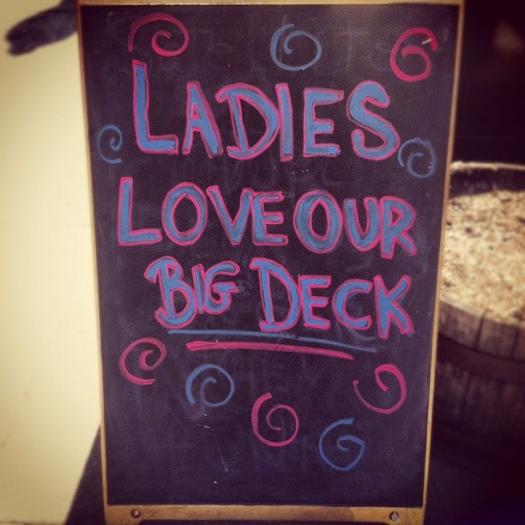 LADIES
LOVE OUR
BIG DECK